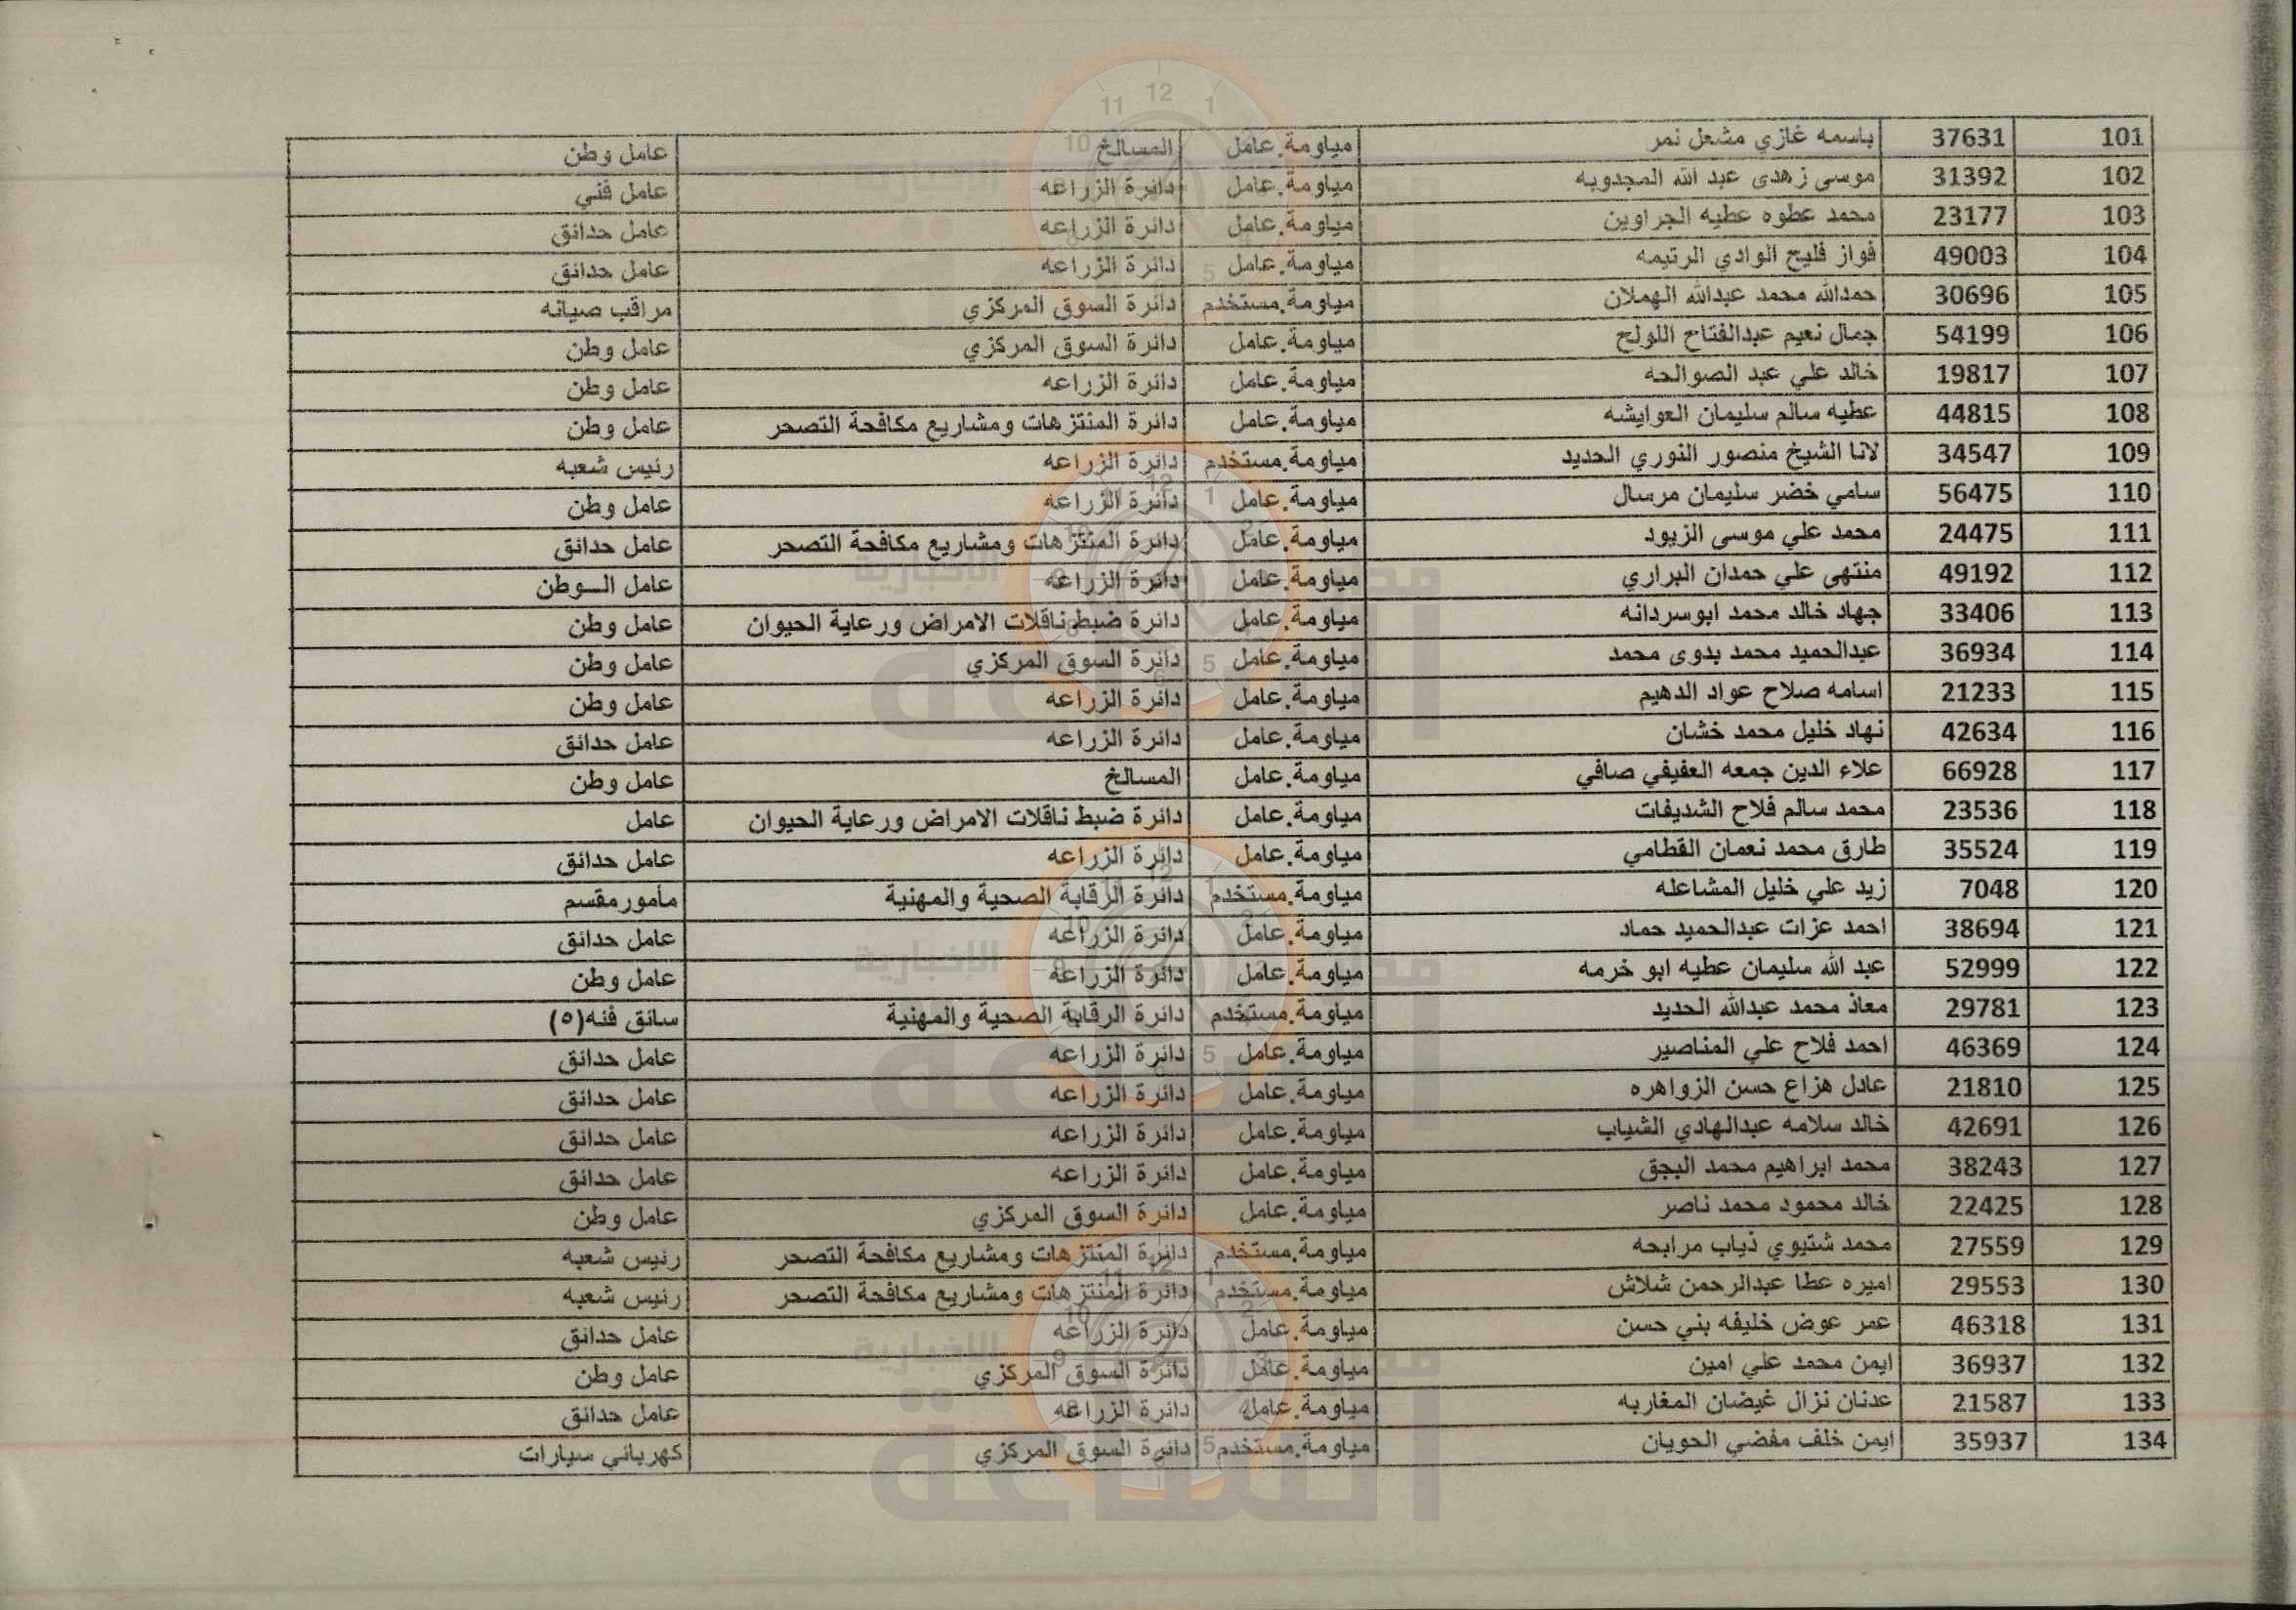 101 37631 باسمه غازي مشعل نمر مياومة.عامل المسالخ عامل وطن
102 31392 موسى زهدى عبد الله المجدوبه مياومة.عامل دائرة الزراعه عامل فني
103 23177 محمد عطوه عطيه الجراوين مياومة.عامل دائرة الزراعه عامل حدائق
104 49003 فواز فليح الوادي الرتيمه مياومة.عامل دائرة الزراعه عامل حدائق
105 30696 حمدالله محمد عبدالله الهملان مياومة.مستخدم دائرة السوق المركزي مراقب صيانه
106 54199 جمال نعيم عبدالفتاح اللولح مياومة.عامل دائرة السوق المركزي عامل وطن
107 19817 خالد علي عبد الصوالحه مياومة.عامل دائرة الزراعه عامل وطن
108 44815 عطيه سالم سليمان العوايشه مياومة.عامل دائرة المنتزهات ومشاريع مكافحة التصحر عامل وطن
109 34547 لانا الشيخ منصور النوري الحديد مياومة.مستخدم دائرة الزراعه رئيس شعبه
110 56475 سامي خضر سليمان مرسال مياومة.عامل دائرة الزراعه عامل وطن
111 24475 محمد علي موسى الزيود مياومة.عامل دائرة المنتزهات ومشاريع مكافحة التصحر عامل حدائق
112 49192 منتهى علي حمدان البراري مياومة.عامل دائرة الزراعه عامل الـوطن
113 33406 جهاد خالد محمد ابوسردانه مياومة.عامل دائرة ضبط ناقلات الامراض ورعاية الحيوان عامل وطن
114 36934 عبدالحميد محمد بدوى محمد مياومة.عامل دائرة السوق المركزي عامل وطن
115 21233 اسامه صلاح عواد الدهيم مياومة.عامل دائرة الزراعه عامل وطن
116 42634 نهاد خليل محمد خشان مياومة.عامل دائرة الزراعه عامل حدائق
117 66928 علاء الدين جمعه العفيفي صافي مياومة.عامل المسالخ عامل وطن
118 23536 محمد سالم فلاح الشديفات مياومة.عامل دائرة ضبط ناقلات الامراض ورعاية الحيوان عامل
119 35524 طارق محمد نعمان القطامي مياومة.عامل دائرة الزراعه عامل حدائق
120 7048 زيد علي خليل المشاعله مياومة.مستخدم دائرة الرقابة الصحية والمهنية مأمور مقسم
121 38694 احمد عزات عبدالحميد حماد مياومة.عامل دائرة الزراعه عامل حدائق
122 52999 عبد الله سليمان عطيه ابو خرمه مياومة.عامل دائرة الزراعه عامل وطن
123 29781 معاذ محمد عبدالله الحديد مياومة.مستخدم دائرة الرقابة الصحية والمهنية سائق فئه(٥)
124 46369 احمد فلاح علي المناصير مياومة.عامل دائرة الزراعه عامل حدائق
125 21810 عادل هزاع حسن الزواهره مياومة.عامل دائرة الزراعه عامل حدائق
126 42691 خالد سلامه عبدالهادي الشياب مياومة.عامل دائرة الزراعه عامل حدائق
127 38243 محمد ابراهيم محمد البجق مياومة.عامل دائرة الزراعه عامل حدائق
128 22425 خالد محمود محمد ناصر مياومة.عامل دائرة السوق المركزي عامل وطن
129 27559 محمد شتيوي ذياب مرابحه مياومة.مستخدم دائرة المنتزهات ومشاريع مكافحة التصحر رئيس شعبه
130 29553 اميره عطا عبدالرحمن شلاش مياومة.مستخدم دائرة المنتزهات ومشاريع مكافحة التصحر رئيس شعبه
131 46318 عمر عوض خليفه بني حسن مياومة.عامل دائرة الزراعه عامل حدائق
132 36937 ايمن محمد علي امين مياومة.عامل دائرة السوق المركزي عامل وطن
133 21587 عدنان نزال غيضان المغاربه مياومة.عامل دائرة الزراعه عامل حدائق
134 35937 ايمن خلف مفضي الحويان مياومة.مستخدم دائرة السوق المركزي كهربائي سيارات